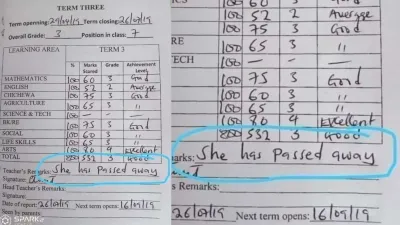 TERM THREE
Term opening: 29/04/19 Term closing: 26/07/19
Overall Grade: 3 Position in class: 7
LEARNING AREA TERM 3
% Marks Scored Grade Achievement Level
MATHEMATICS 100 60 3 Good
ENGLISH 100 52 2 Average
CHICHEWA 100 75 3 Good
AGRICULTURE 100 60 3 "
100 65 3 "
SCIENCE & TECH — — —
BK/RE 100 75 3 Good
SOCIAL 100 60 3 "
LIFE SKILLS 100 65 3 "
ARTS 100 80 4 Excellent
TOTAL 800 532 3 Good
Teacher's Remarks: She has Passed away
Signature:
Head Teacher's Remarks:
Signature:
Date of report: 26/07/19 Next term opens: 16/09/19
Seen by parents:
100 60 3
100 52 2 Average
100 75 3 Good
100 60 3 "
RE 100 65 3 "
TECH — — —
100 75 3 Good
100 60 3 "
100 65 3 "
100 80 4 Excellent
800 532 3 Good
marks: She has Passed away
's Remarks:
26/07/19 Next term opens: 16/09/19